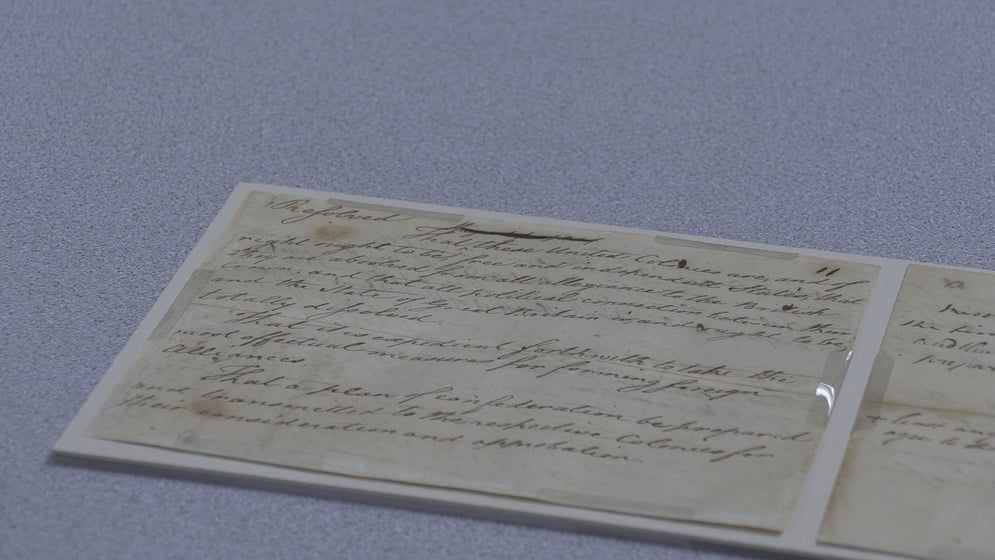 Resolved
That these United Colonies are, and of
right ought to be, free and independent States, that
they are absolved from all allegiance to the British
Crown, and that all political connection between them
and the State of Great Britain is and ought to be
totally dissolved.
That it is expedient forthwith to take the
most effectual measures for forming foreign
Alliances.
That a plan of confederation be prepared
and transmitted to the respective Colonies for
their consideration and approbation.
11